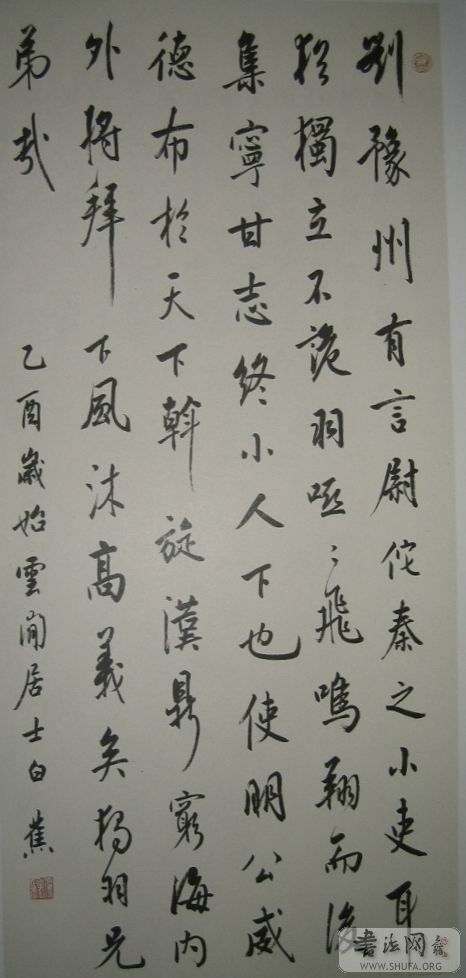 劉豫州有言尉佗秦之小吏耳
猶獨立不詭羽啞〻飛鳴翔而後
集寧甘志終小人下也使明公威
德布於天下斡旋漢鼎窮海内
外將拜下風沐高義矣獨羽兄
弟哉
乙酉歲始雲間居士白蕉
書法网
WWW.SHUFA.ORG